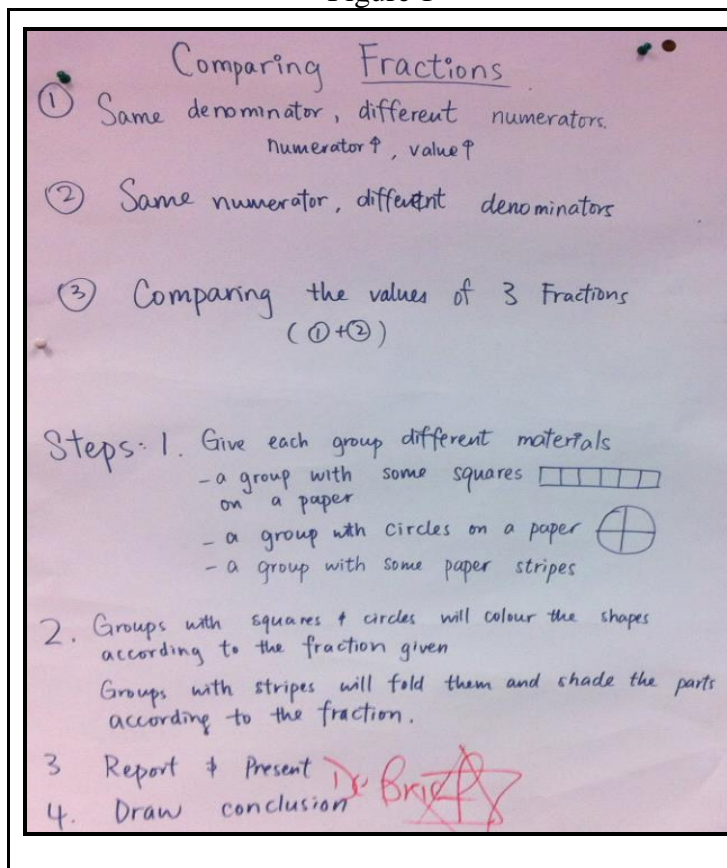 Comparing Fractions
① Same denominator, different numerators.
numerator↑, value↑
② Same numerator, different denominators
③ Comparing the values of 3 Fractions
(①+②)
Steps: 1. Give each group different materials
- a group with some squares
on a paper
- a group with circles on a paper
- a group with some paper stripes
2. Groups with squares & circles will colour the shapes
according to the fraction given
Groups with stripes will fold them and shade the parts
according to the fraction.
3 Report & Present
4. Draw conclusion